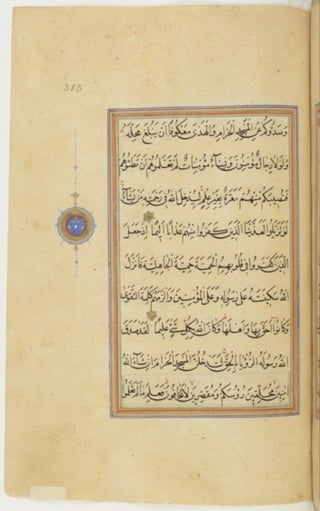 وَصَدُّوكُمْ عَنِ الْمَسْجِدِ الْحَرَامِ وَالْهَدْيَ مَعْكُوفًا أَنْ يَبْلُغَ مَحِلَّهُ
وَلَوْلَا رِجَالٌ مُؤْمِنُونَ وَنِسَاءٌ مُؤْمِنَاتٌ لَمْ تَعْلَمُوهُمْ أَنْ تَطَئُوهُمْ
فَتُصِيبَكُمْ مِنْهُمْ مَعَرَّةٌ بِغَيْرِ عِلْمٍ لِيُدْخِلَ اللَّهُ فِي رَحْمَتِهِ مَنْ يَشَاءُ
لَوْ تَزَيَّلُوا لَعَذَّبْنَا الَّذِينَ كَفَرُوا مِنْهُمْ عَذَابًا أَلِيمًا إِذْ جَعَلَ
الَّذِينَ كَفَرُوا فِي قُلُوبِهِمُ الْحَمِيَّةَ حَمِيَّةَ الْجَاهِلِيَّةِ فَأَنْزَلَ
اللَّهُ سَكِينَتَهُ عَلَى رَسُولِهِ وَعَلَى الْمُؤْمِنِينَ وَأَلْزَمَهُمْ كَلِمَةَ التَّقْوَى
وَكَانُوا أَحَقَّ بِهَا وَأَهْلَهَا وَكَانَ اللَّهُ بِكُلِّ شَيْءٍ عَلِيمًا لَقَدْ صَدَقَ
اللَّهُ رَسُولَهُ الرُّؤْيَا بِالْحَقِّ لَتَدْخُلُنَّ الْمَسْجِدَ الْحَرَامَ إِنْ شَاءَ اللَّهُ
آمِنِينَ مُحَلِّقِينَ رُءُوسَكُمْ وَمُقَصِّرِينَ لَا تَخَافُونَ فَعَلِمَ مَا لَمْ تَعْلَمُوا